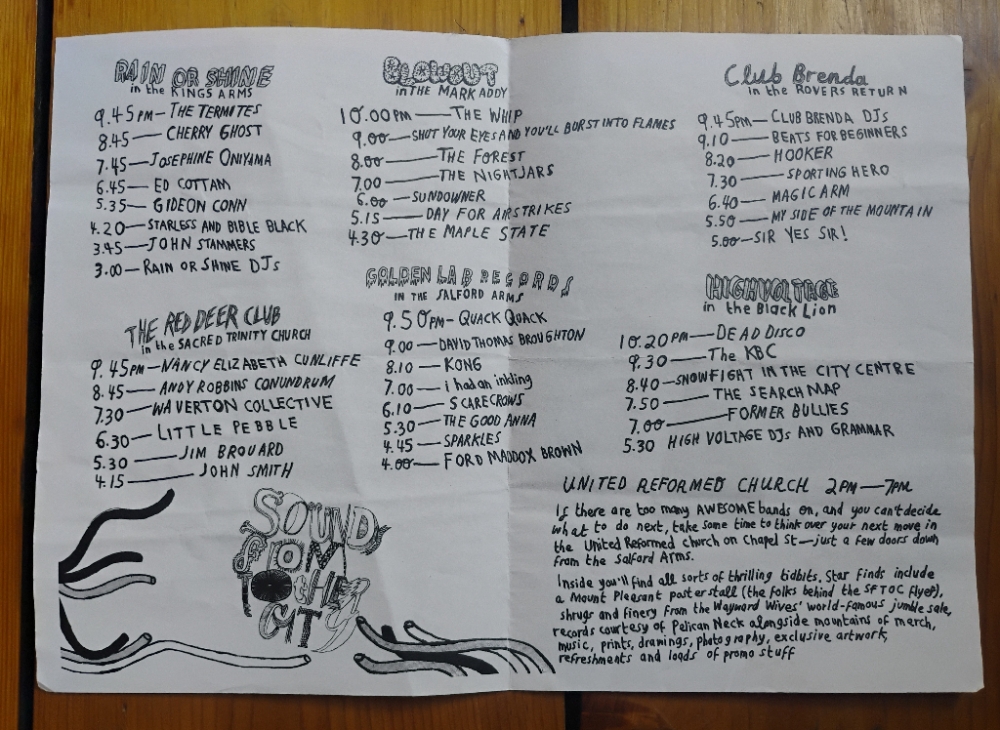 RAIN OR SHINE
in the KINGS ARMS
9.45PM—THE TERMITES
8.45—CHERRY GHOST
7.45—JOSEPHINE ONIYAMA
6.45—ED COTTAM
5.35—GIDEON CONN
4.20—STARLESS AND BIBLE BLACK
3.45—JOHN STAMMERS
3.00—RAIN OR SHINE DJs
THE RED DEER CLUB
in the SACRED TRINITY CHURCH
9.45PM—NANCY ELIZABETH CUNLIFFE
8.45—ANDY ROBBINS CONUNDRUM
7.30—WAVERTON COLLECTIVE
6.30—LITTLE PEBBLE
5.30—JIM BROUARD
4.15—JOHN SMITH
BLOWOUT
in THE MARK ADDY
10.00PM—THE WHIP
9.00—SHUT YOUR EYES AND YOU'LL BURST INTO FLAMES
8.00—THE FOREST
7.00—THE NIGHTJARS
6.00—SUNDOWNER
5.15—DAY FOR AIRSTRIKES
4.30—THE MAPLE STATE
GOLDEN LAB RECORDS
IN THE SALFORD ARMS
9.50PM—QUACK QUACK
9.00—DAVID THOMAS BROUGHTON
8.10—KONG
7.00—i had an inkling
6.10—SCARECROWS
5.30—THE GOOD ANNA
4.45—SPARKLES
4.00—FORD MADDOX BROWN
Club Brenda
in the ROVERS RETURN
9.45PM—CLUB BRENDA DJs
9.10—BEATS FOR BEGINNERS
8.20—HOOKER
7.30—SPORTING HERO
6.40—MAGIC ARM
5.50—MY SIDE OF THE MOUNTAIN
5.00—SIR YES SIR!
HIGH VOLTAGE
in the Black Lion
10.20PM—DEAD DISCO
9.30—The KBC
8.40—SNOWFIGHT IN THE CITY CENTRE
7.50—THE SEARCH MAP
7.00—FORMER BULLIES
5.30 HIGH VOLTAGE DJs AND GRAMMAR
UNITED REFORMED CHURCH 2PM—7PM
If there are too many AWESOME bands on, and you can't decide
what to do next, take some time to think over your next move in
the United Reformed church on Chapel St—just a few doors down
from the Salford Arms.
Inside you'll find all sorts of thrilling tidbits. Star finds include
a Mount Pleasant poster stall (the folks behind the SFTOC flyer),
shrugs and finery from the Wayward Wives' world-famous jumble sale,
records courtesy of Pelican Neck alongside mountains of merch,
music, prints, drawings, photography, exclusive artwork,
refreshments and loads of promo stuff
SOUNDS
FROM
THE OTHER
CITY